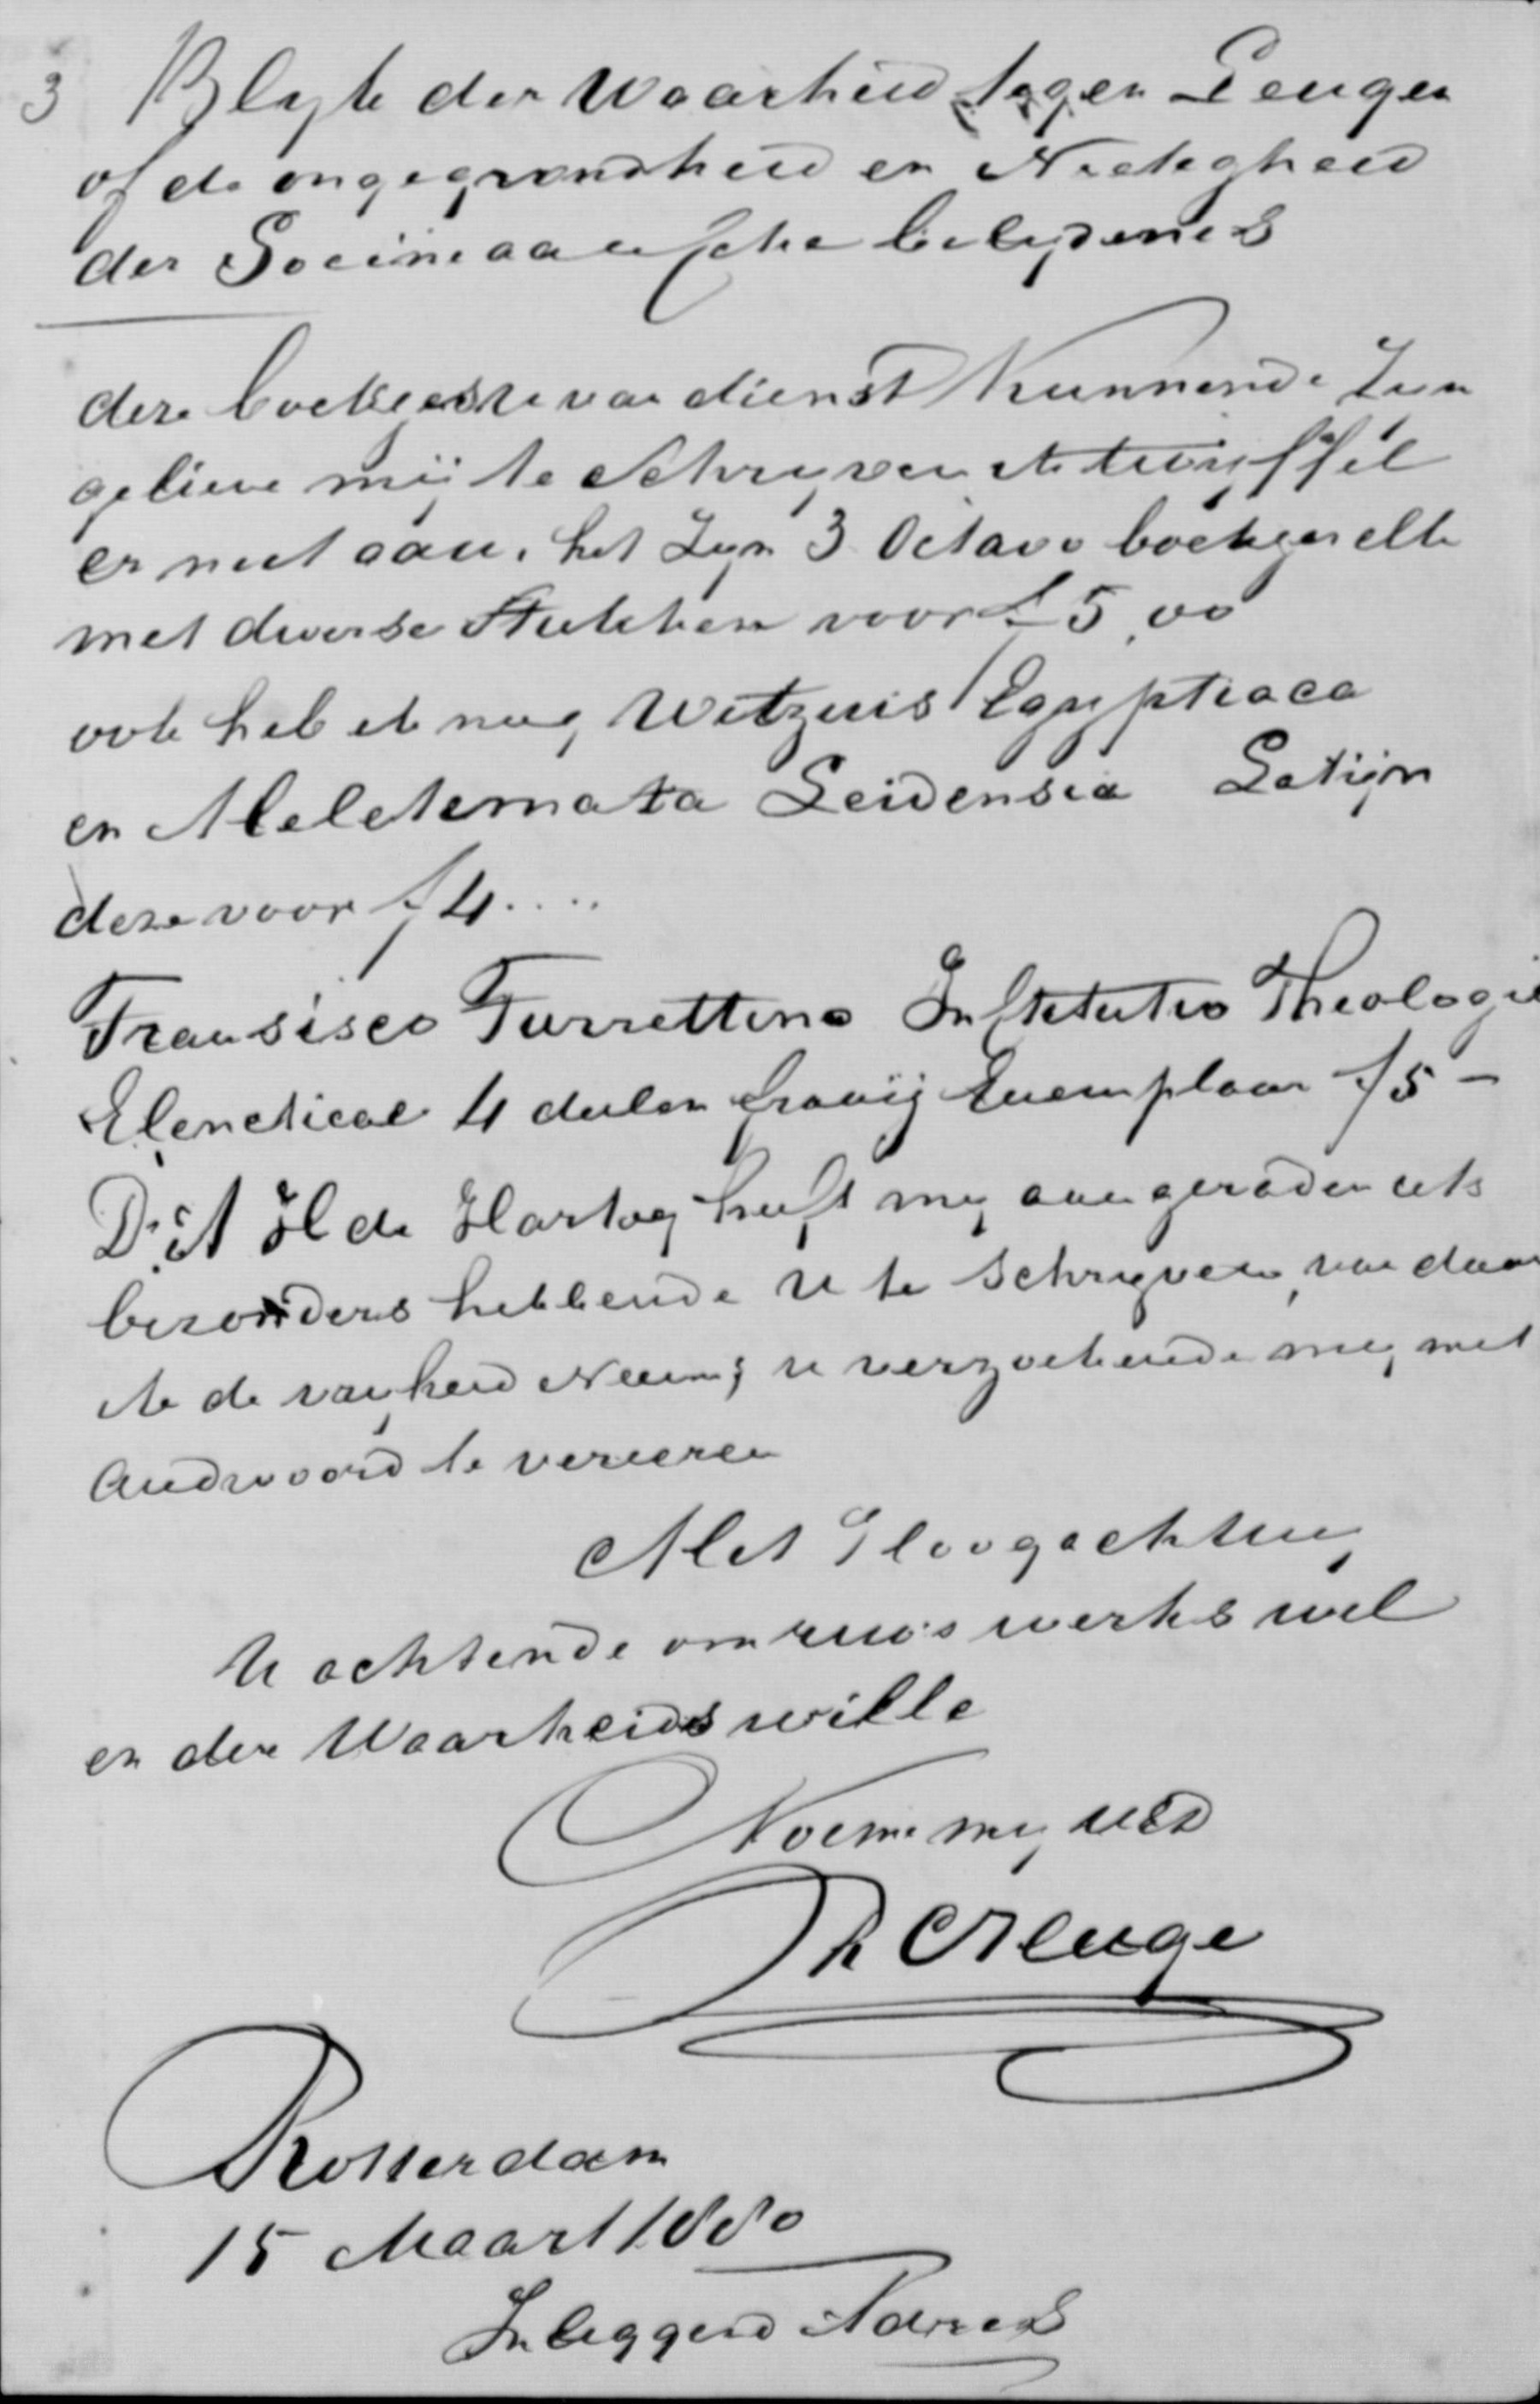 3 Blyk der Waarheid tegen Leugen
of de ongegrondheid en Nietigheid
der Sociniaansche belydenis
deze boekjes U van dienst kunnende Zyn
gelieve mij te Schryven ik twijffel
er niet aan. het Zyn 3 Octavo boekjes elk
met diverse Stukken voor f 5,00
ook heb ik nog Witzius Egyptiaca
en Meletemata Leidensia Latijn
deze voor f 4....
Fransisco Turrettino Institutio Theologie
Elencticae 4 deelen fraaij Exemplaar f 5 -
Ds A H de Hartog heeft my aangeraden iets
bezonders hebbende U te Schryven, van daar
ik de vryheid Neem; U verzoekende my met
andwoord te vereeren
Met Hoogachting
U achtende om uws werks wil
en der Waarheids wille
Noeme my UEd
Rotterdam
15 Maart 1880
Inleggend Adres